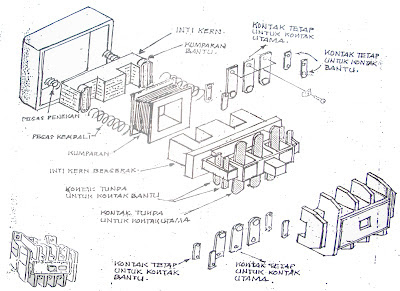 INTI KERN
KUMPARAN
BANTU.
KONTAK TETAP
UNTUK KONTAK
UTAMA.
KONTAK TETAP
UNTUK KONTAK
BANTU.
PEGAS PENEKAN
PEGAS KEMBALI
KUMPARAN
INTI KERN BERGERAK
KONTAK TUNDA
UNTUK KONTAK BANTU
KONTAK TUNDA
UNTUK KONTAK UTAMA
KONTAK TETAP
UNTUK KONTAK
BANTU.
KONTAK TETAP
UNTUK KONTAK
UTAMA.